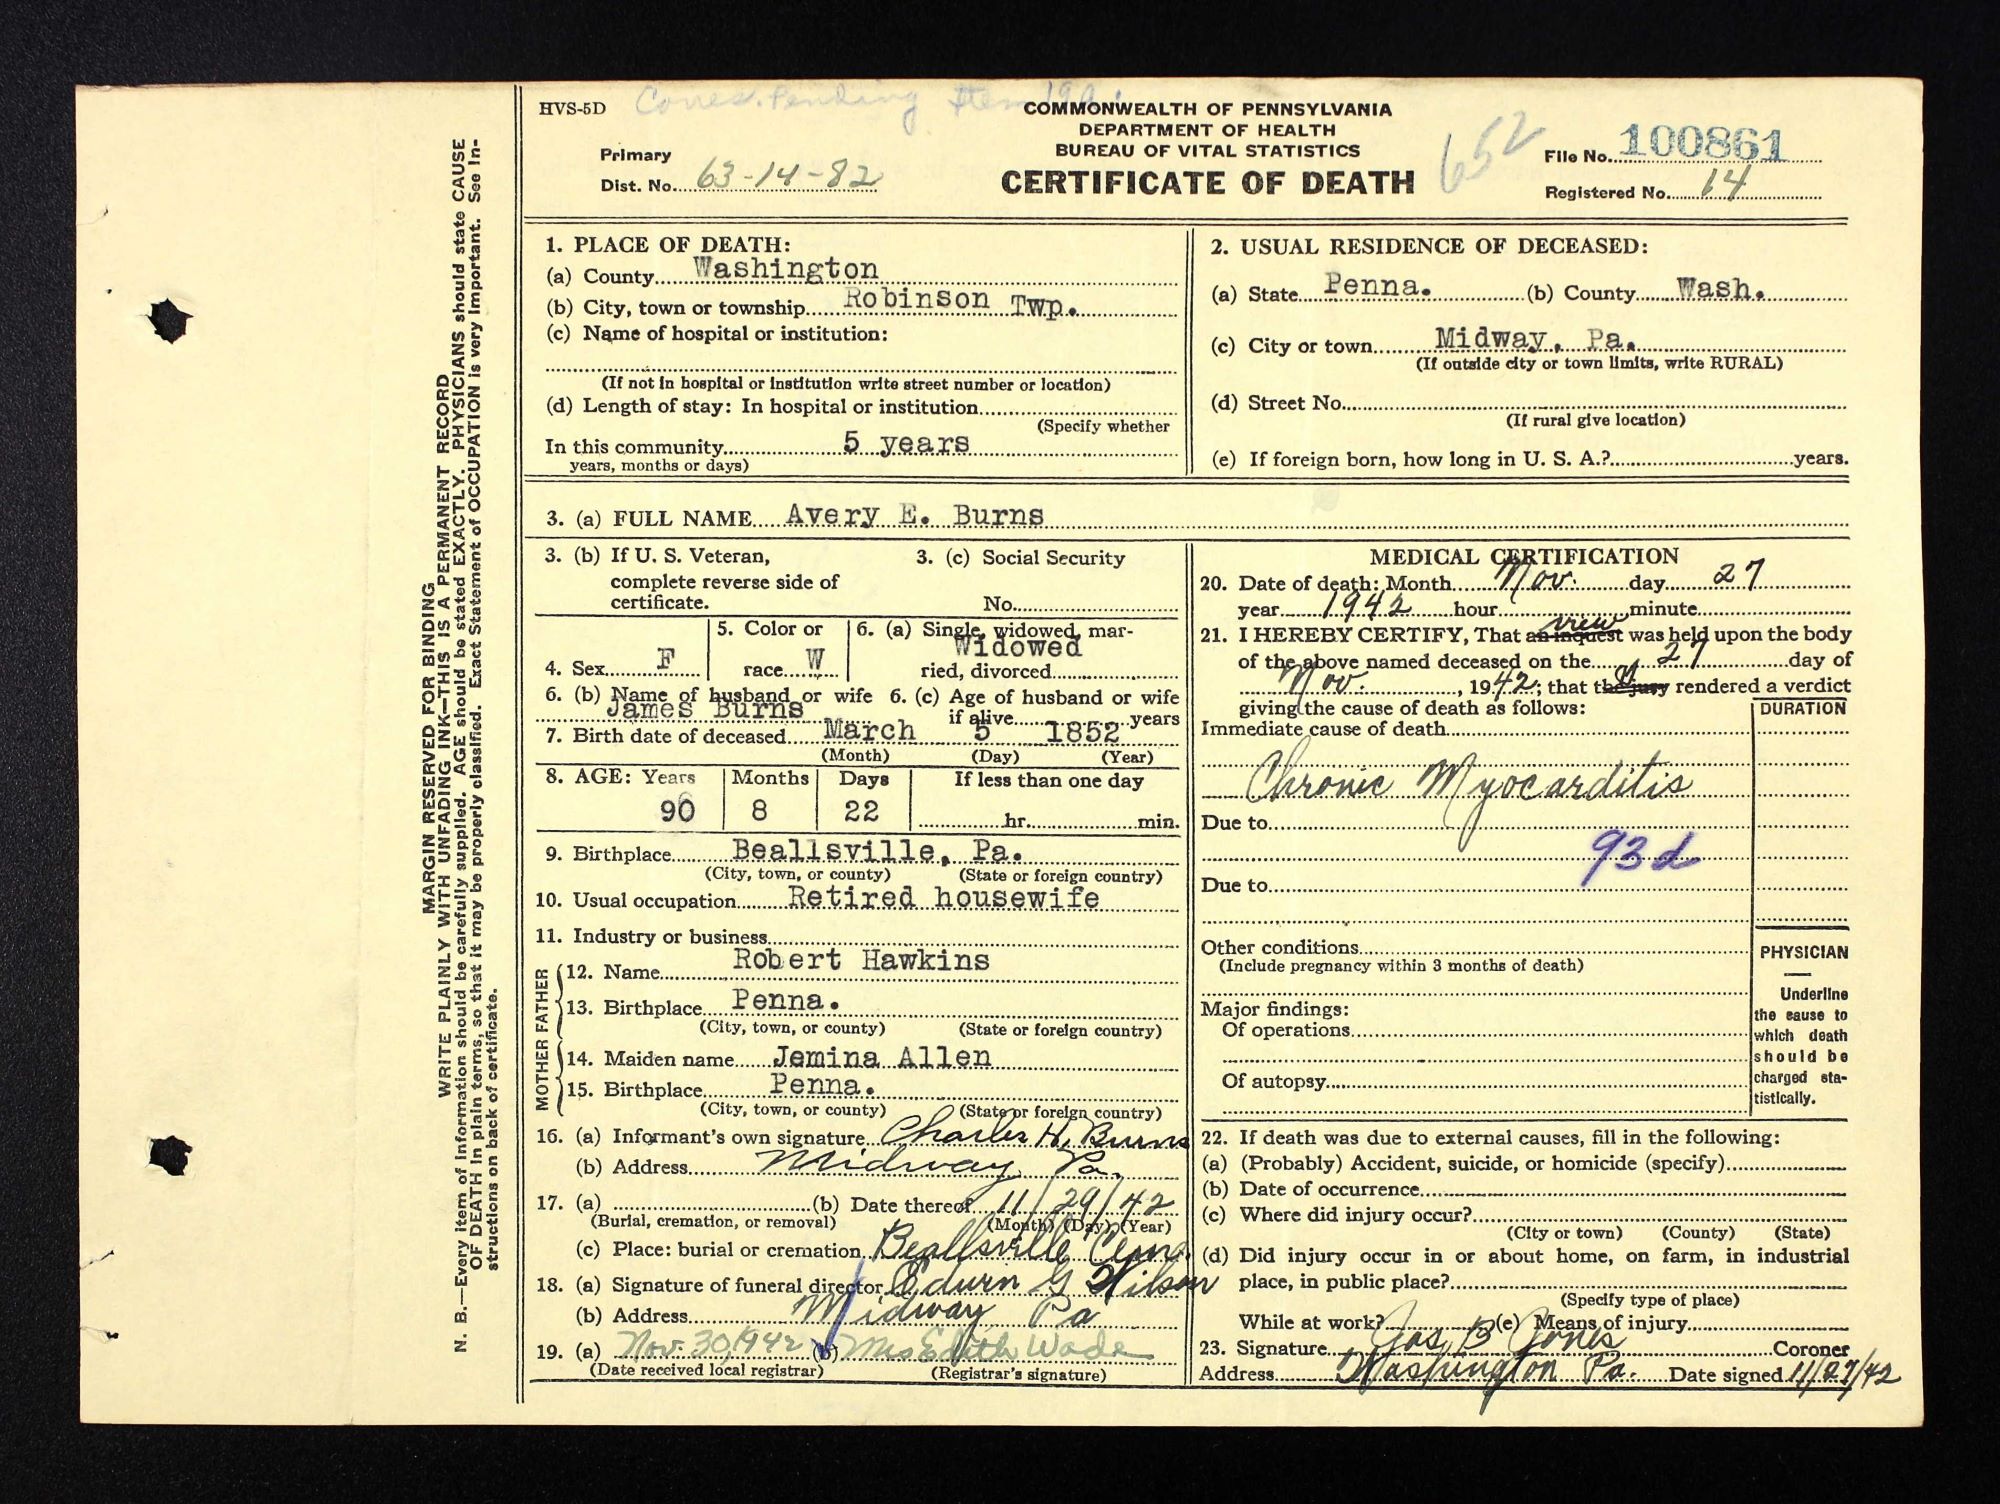 Corres. Pending Item 19a.
HVS-5D
COMMONWEALTH OF PENNSYLVANIA
DEPARTMENT OF HEALTH
BUREAU OF VITAL STATISTICS
CERTIFICATE OF DEATH
Primary
Dist. No. 63-14-82
652
File No. 100861
Registered No. 14
MARGIN RESERVED FOR BINDING
WRITE PLAINLY WITH UNFADING INK—THIS IS A PERMANENT RECORD
N. B.—Every item of information should be carefully supplied. AGE should be stated EXACTLY. PHYSICIANS should state CAUSE
OF DEATH in plain terms, so that it may be properly classified. Exact Statement of OCCUPATION is very important. See In-
structions on back of certificate.
1. PLACE OF DEATH:
(a) County Washington
(b) City, town or township Robinson Twp.
(c) Name of hospital or institution:
(If not in hospital or institution write street number or location)
(d) Length of stay: In hospital or institution
(Specify whether
In this community 5 years
years, months or days)
2. USUAL RESIDENCE OF DECEASED:
(a) State Penna. (b) County Wash.
(c) City or town Midway, Pa.
(If outside city or town limits, write RURAL)
(d) Street No.
(If rural give location)
(e) If foreign born, how long in U. S. A.? years.
3. (a) FULL NAME Avery E. Burns
3. (b) If U. S. Veteran, 3. (c) Social Security
complete reverse side of
certificate. No.
4. Sex F
5. Color or
race W
6. (a) Single, widowed, mar-
Widowed
ried, divorced
6. (b) Name of husband or wife 6. (c) Age of husband or wife
James Burns if alive years
7. Birth date of deceased March 5 1852
(Month) (Day) (Year)
8. AGE: Years Months Days If less than one day
90 8 22 hr. min.
9. Birthplace Beallsville, Pa.
(City, town, or county) (State or foreign country)
10. Usual occupation Retired housewife
11. Industry or business
FATHER
12. Name Robert Hawkins
13. Birthplace Penna.
(City, town, or county) (State or foreign country)
MOTHER
14. Maiden name Jemina Allen
15. Birthplace Penna.
(City, town, or county) (State or foreign country)
16. (a) Informant's own signature Charles H. Burns
(b) Address Midway Pa.
17. (a) (b) Date thereof 11/29/42
(Burial, cremation, or removal) (Month) (Day) (Year)
(c) Place: burial or cremation Beallsville Cem.
18. (a) Signature of funeral director Edwin G Wilson
(b) Address Midway Pa
19. (a) Nov. 30, 1942 (b) Mrs Edith Wade
(Date received local registrar) (Registrar's signature)
MEDICAL CERTIFICATION
20. Date of death: Month Nov. day 27
year 1942 hour minute
view
21. I HEREBY CERTIFY, That an inquest was held upon the body
of the above named deceased on the 27 day of
Nov. , 1942; that the jury rendered a verdict
giving the cause of death as follows: DURATION
Immediate cause of death
Chronic Myocarditis
Due to
93d
Due to
Other conditions
(Include pregnancy within 3 months of death)
Major findings:
Of operations
Of autopsy
PHYSICIAN
Underline
the cause to
which death
should be
charged sta-
tistically.
22. If death was due to external causes, fill in the following:
(a) (Probably) Accident, suicide, or homicide (specify)
(b) Date of occurrence
(c) Where did injury occur?
(City or town) (County) (State)
(d) Did injury occur in or about home, on farm, in industrial
place, in public place?
(Specify type of place)
While at work? (e) Means of injury
23. Signature Jas B Jones Coroner
Address Washington Pa. Date signed 11/27/42